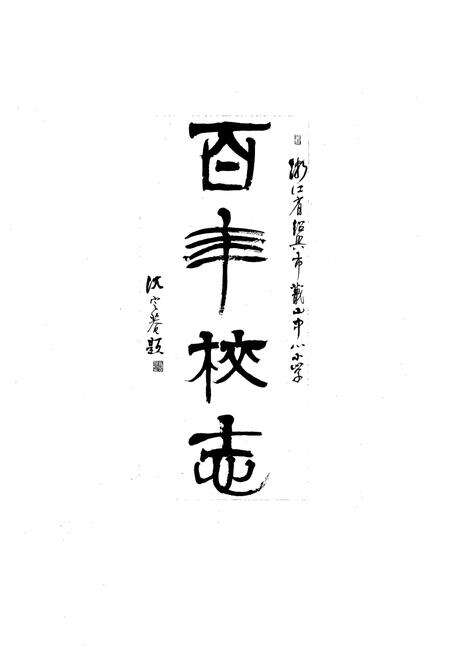 浙江省绍兴市蕺山中心小学
百年校志
沈定菴题